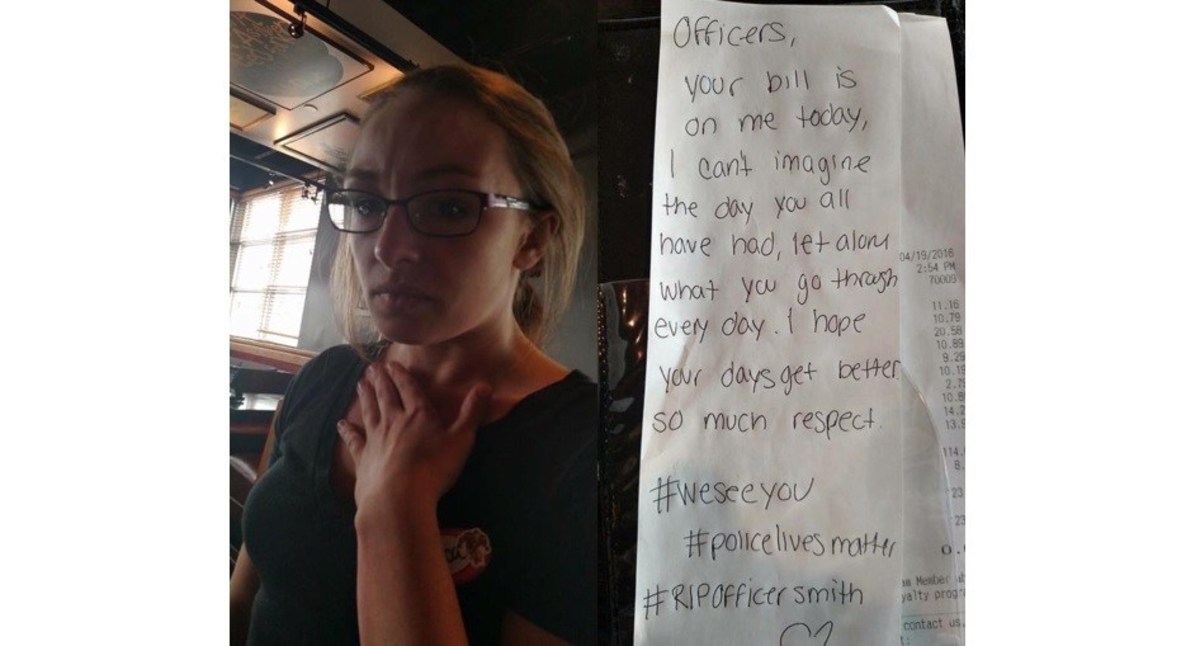 Officers,
your bill is
on me today,
I can't imagine
the day you all
have had, let alone
what you go through
every day. I hope
your days get better.
so much respect.
#weseeyou
#policelivesmatter
#RIPOfficersmith
04/19/2016
2:54 PM
70003
11.16
10.79
20.58
10.89
9.29
10.19
2.79
10.8
14.2
13.9
114.
8.
23
23
0.
Member
contact us